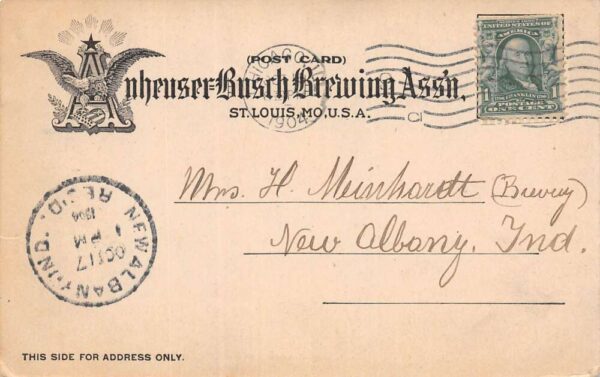 (POST CARD)
Anheuser-Busch Brewing Ass'n.
ST. LOUIS, MO., U.S.A.
CHICAGO
1904
UNITED STATES OF
AMERICA
1 1
FRANKLIN
POSTAGE
ONE CENT
Mrs. H. Meinhardt (Brewery)
New Albany, Ind.
NEW ALBANY, IND.
REC'D.
OCT 17
PM
THIS SIDE FOR ADDRESS ONLY.